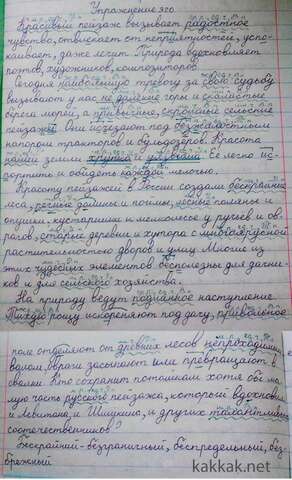 Упражнение 320.
Красивый пейзаж вызывает радостное
чувство, отвлекает от неприятностей, успо-
каивает, даже лечит. Природа вдохновляет
поэтов, художников, композиторов.
Сегодня наибольшую тревогу за свою судьбу
вызывают у нас не далёкие горы и скалистые
берега морей, а привычные, скромные сельские
пейзажи. Они исчезают под безжалостным
напором тракторов и бульдозеров. Красота
нашей земли хрупка и уязвима. Её легко ис-
портить и обидеть каждой мелочью.
Красоту пейзажей в России создали бескрайние
леса, речные долины и поймы, лесные поляны и
опушки с кустарником и мелколесье у ручьев и ов-
рагов, старые деревни и хутора с многоярусной
растительностью дворов и улиц. Многие из
этих чудесных элементов бесполезны для дачни-
ков и для сельского хозяйства.
На природу ведут наступление.
рощу искореняют под дачу, привольное
поле отделяют от древних лесов непроходимым
валом, овраги засыпают или превращают в
свалки. Кто сохранит потомкам хотя бы ма-
лую часть русского пейзажа, которым вдохновля
и Левитана, и Шишкина, и других талантливых
соотечественников?
Бескрайний - безграничный, беспредельный, без
брежный
kakkak.net